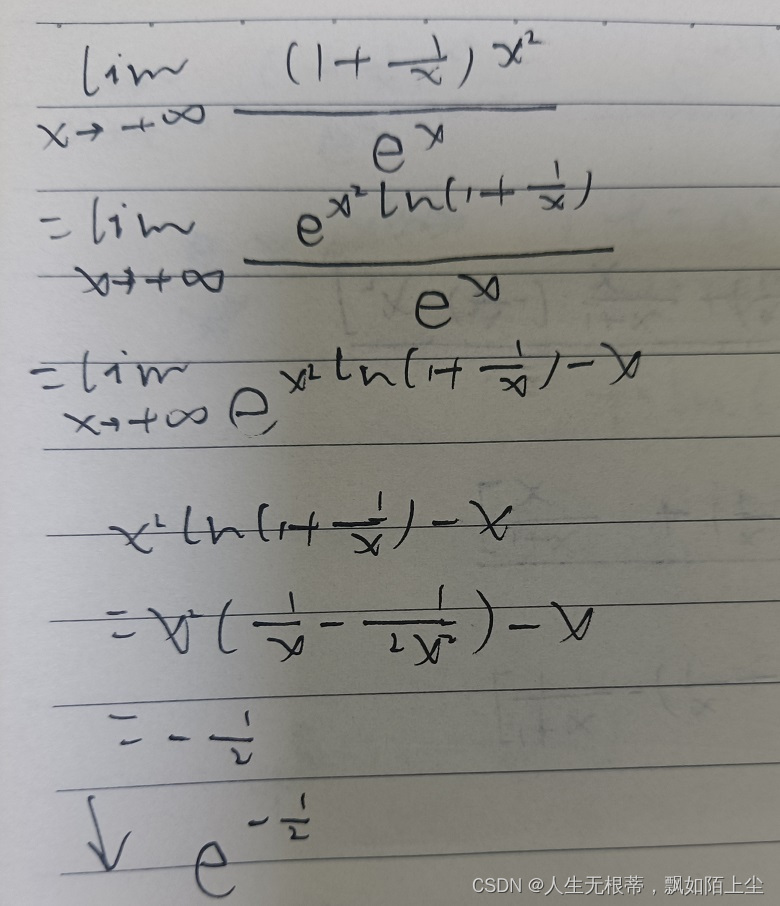 lim x→+∞ (1+1/x)^x² / e^x
= lim x→+∞ e^(x² ln(1+1/x)) / e^x
= lim x→+∞ e^(x² ln(1+1/x) - x)
x² ln(1+1/x) - x
= x²(1/x - 1/2x²) - x
= -1/2
↓ e^(-1/2)
CSDN @人生无根蒂，飘如陌上尘